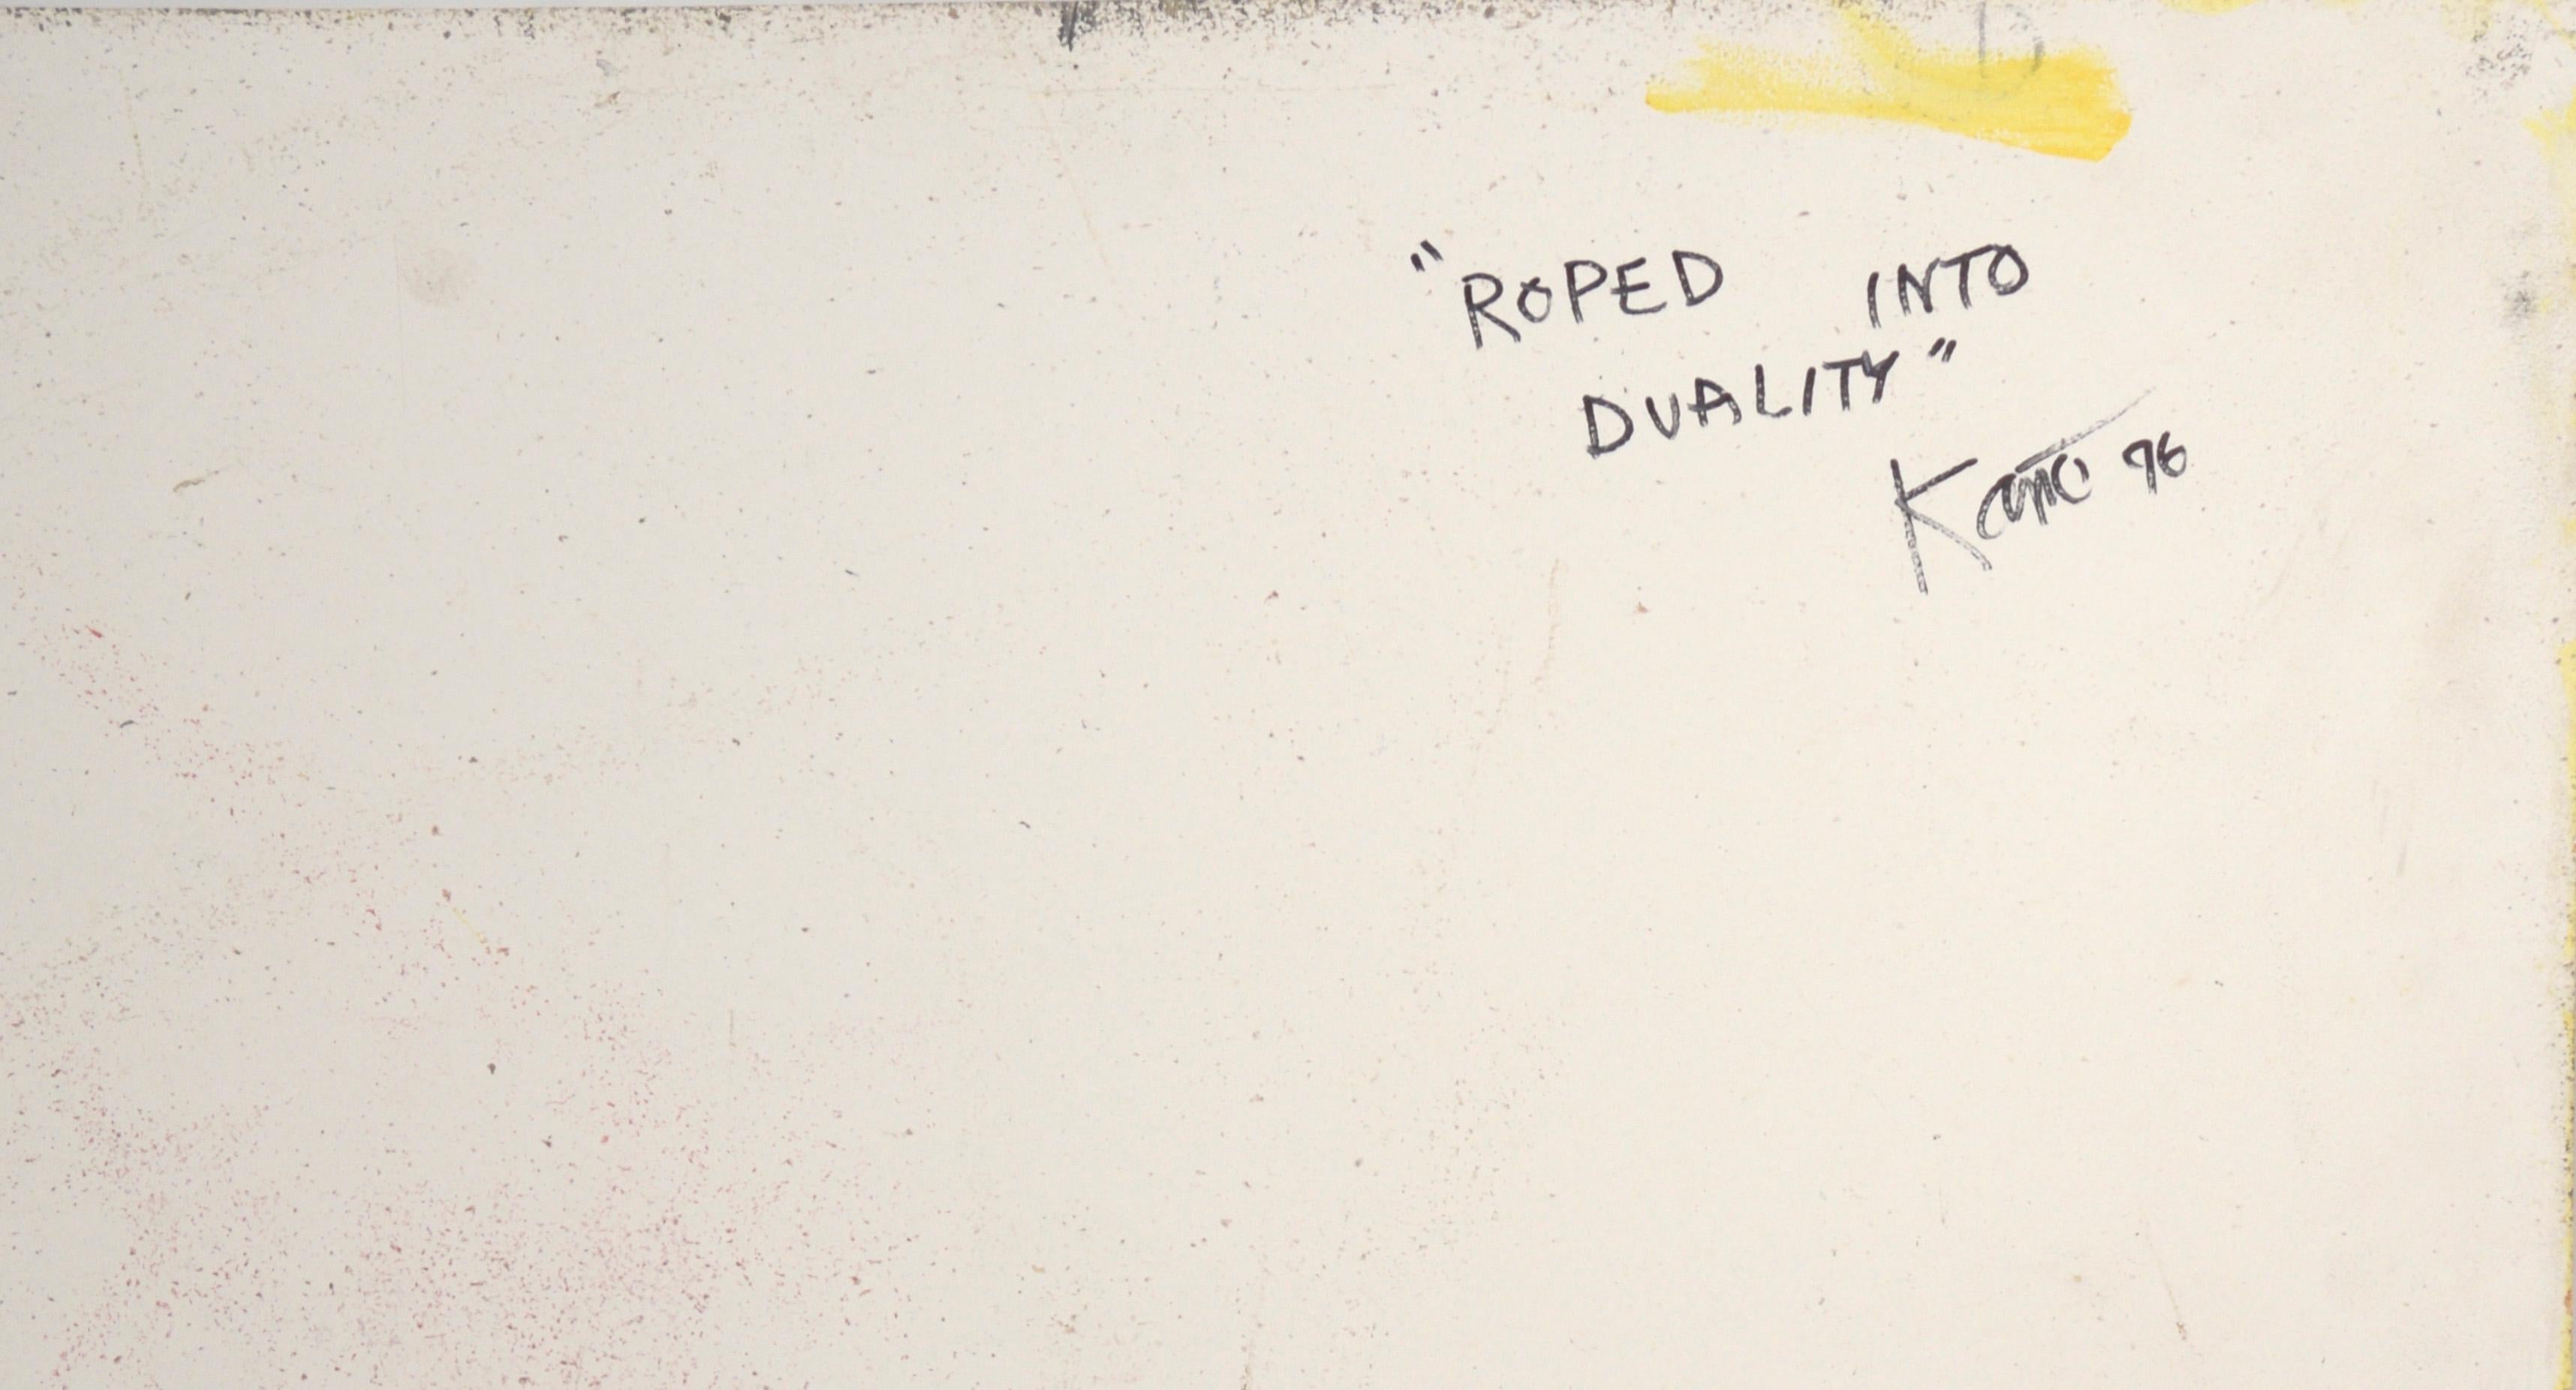 "ROPED INTO
DUALITY"
96